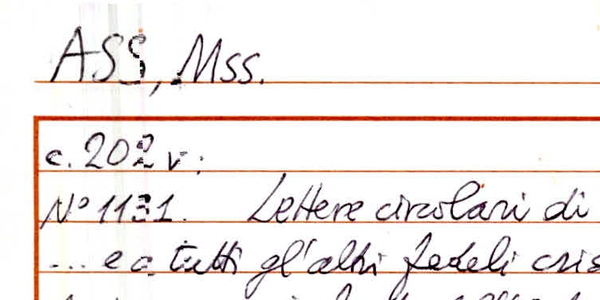 ASS, Mss.
c. 202 v:
N° 1131. Lettere circolari di
... e a tutti gl'altri fedeli cris